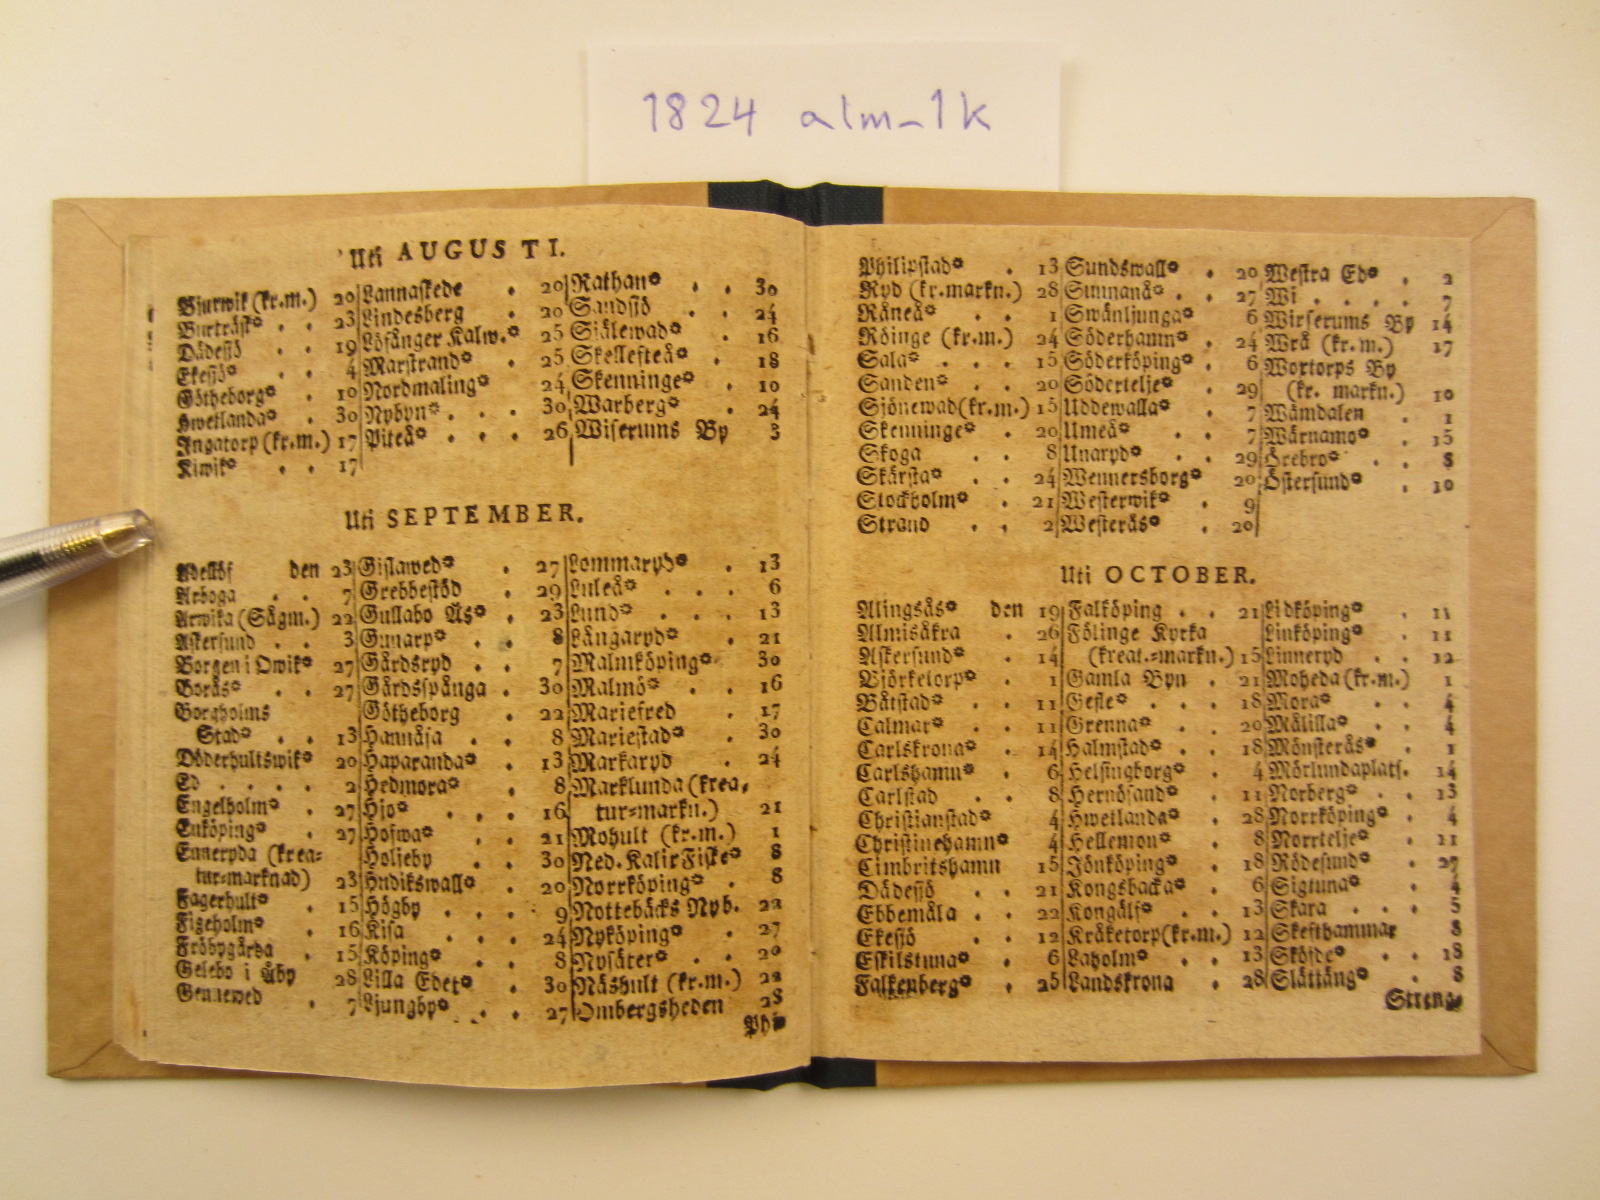 1824 alm-1k
Uti AUGUSTI.
Bjurwik (kr.m.) 20
Burträsk* . . 23
Dädesjö . . 19
Ekesjö* . . 4
Götheborg* . 10
Hwetlanda* . 30
Ingatorp (kr.m.) 17
Kiwik* . . 17
Lannaskede . 20
Lindesberg . 20
Löfånger Kalw.* 25
Marstrand* . 25
Nordmaling* 24
Nybyn* . . . 30
Piteå* . . . 26
Rathan* . . 30
Sandsjö . . 24
Själewad* . 16
Skellefteå* . 18
Skenninge* . 10
Warberg* . 24
Wiserums By 3
Uti SEPTEMBER.
Adellöf den 23
Arboga . . 7
Arwika (Sågm.) 22
Askersund . . 3
Borgen i Owik* 27
Borås* . . 27
Borgholms
Stad* . . 13
Döderhultswik* 20
Ed . . . . 2
Engelholm* . 27
Enköping* . 27
Enneryda (krea-
tur-marknad) 23
Fagerhult* . 15
Figeholm* . 16
Fröbygårda . 15
Gelebo i Åby 28
Gennewed . 7
Gislawed* . 27
Grebbestöd 29
Gullabo Ås* . 23
Gunarp* . . 8
Gårdsryd . 7
Gårdsspånga . 30
Götheborg . 22
Hannäsa . . 8
Haparanda* . 13
Hedmora* . 8
Hjo* . . . 16
Hofwa* . . 21
Holjeby . . 30
Hudikswall* . 20
Högby . . . 9
Kisa . . . 24
Köping* . . 8
Lilla Edet* . 30
Ljungby* . . 27
Lommaryd* . 13
Luleå* . . . 6
Lund* . . . 13
Långaryd* . 21
Malmköping* 30
Malmö* . . 16
Mariefred . 17
Mariestad* . 30
Markaryd . 24
Marklunda (krea-
tur-markn.) 21
Mohult (kr.m.) 1
Ned. Kalix Fiske* 8
Norrköping* . 8
Nottebäcks Nyb. 22
Nyköping* . 27
Nysäter* . . 20
Näshult (kr.m.) 22
Ombergsheden 28
Phi-
Philipstad* . 13
Ryd (kr.markn.) 28
Råneå* . . 1
Röinge (kr.m.) 24
Sala* . . . 15
Sanden* . . 20
Sjönewad (kr.m.) 15
Skenninge* . 20
Skoga . . 8
Skärsta* . . 24
Stockholm* . 21
Strand . . 2
Sundswall* . 20
Sunnanå* . . 27
Swänljunga* 6
Söderhamn* . 24
Söderköping* . 6
Södertelje* . 29
Uddewalla* . 7
Umeå* . . 7
Unaryd* . . 29
Wennersborg* 20
Westerwik* . 9
Westerås* . 20
Westra Ed* . 2
Wi . . . . 7
Wirserums By 14
Wrå (kr.m.) 17
Wortorps By
(kr. markn.) 10
Wämdalen . 1
Wärnamo* . 15
Örebro* . . 8
Östersund* . 10
Uti OCTOBER.
Alingsås* den 19
Almisåkra . 26
Askersund* . 14
Björketorp* . 1
Båtstad* . . 11
Calmar* . . 11
Carlskrona* . 14
Carlshamn* . 6
Carlstad . 8
Christianstad* 4
Christinehamn* 4
Cimbritshamn 15
Dädesjö . . 21
Ebbemåla . . 22
Ekesjö . . 12
Eskilstuna* . 6
Falkenberg* . 25
Falköping . . 21
Fölinge Kyrka
(kreat.-markn.) 15
Gamla Byn . 21
Gefle* . . . 18
Grenna* . . 20
Halmstad* . . 18
Helsingborg* . 4
Hernösand* . 11
Hwetlanda* . 28
Hellemon* . 8
Jönköping* . 18
Kongsbacka* . 6
Kongälf* . . 13
Kråketorp (kr.m.) 12
Laholm* . . 13
Landskrona . 28
Lidköping* . 11
Linköping* . 11
Linneryd . . 12
Moheda (kr.m.) 1
Mora* . . . 4
Målilla* . . 4
Mönsterås* . 1
Mörlundaplats. 14
Norberg* . . 13
Norrköping* . 4
Norrtelje* . 11
Rödesund* . 27
Sigtuna* . . 4
Skara . . . 5
Skefthammar 8
Sköfde* . . 18
Slättäng* . 8
Streng-